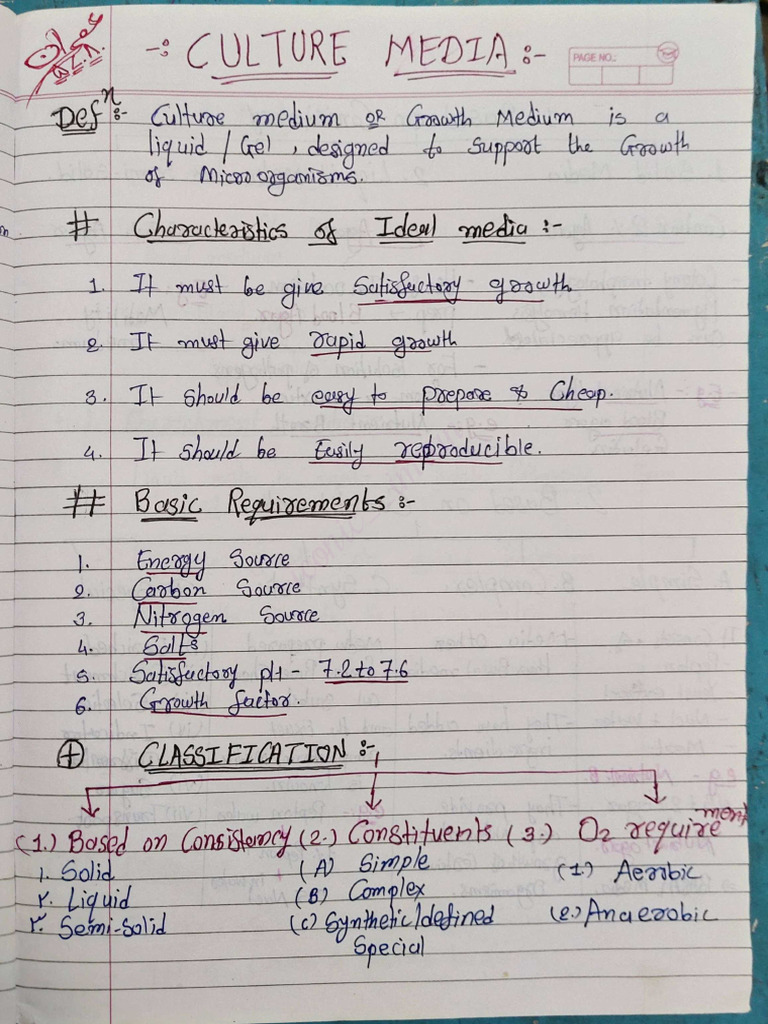 -: CULTURE MEDIA :-
PAGE NO.
Defⁿ :- Culture medium OR Growth Medium is a
liquid / Gel , designed to support the Growth
of Micro organisms.
# Characteristics of Ideal media :-
1. It must be give Satisfactory growth
2. It must give rapid growth
3. It should be easy to prepare & Cheap.
4. It should be Easily reproducible.
# Basic Requirements :-
1. Energy Source
2. Carbon Source
3. Nitrogen Source
4. Salts
5. Satisfactory pH - 7.2 to 7.6
6. Growth factor.
⊕ CLASSIFICATION :-
(1.) Based on Consistency (2.) Constituents (3.) O2 requirement
1. Solid (A) Simple (1.) Aerobic
२. Liquid (B) Complex (2.) Anaerobic
३. Semi-Solid (C) Synthetic/defined
Special